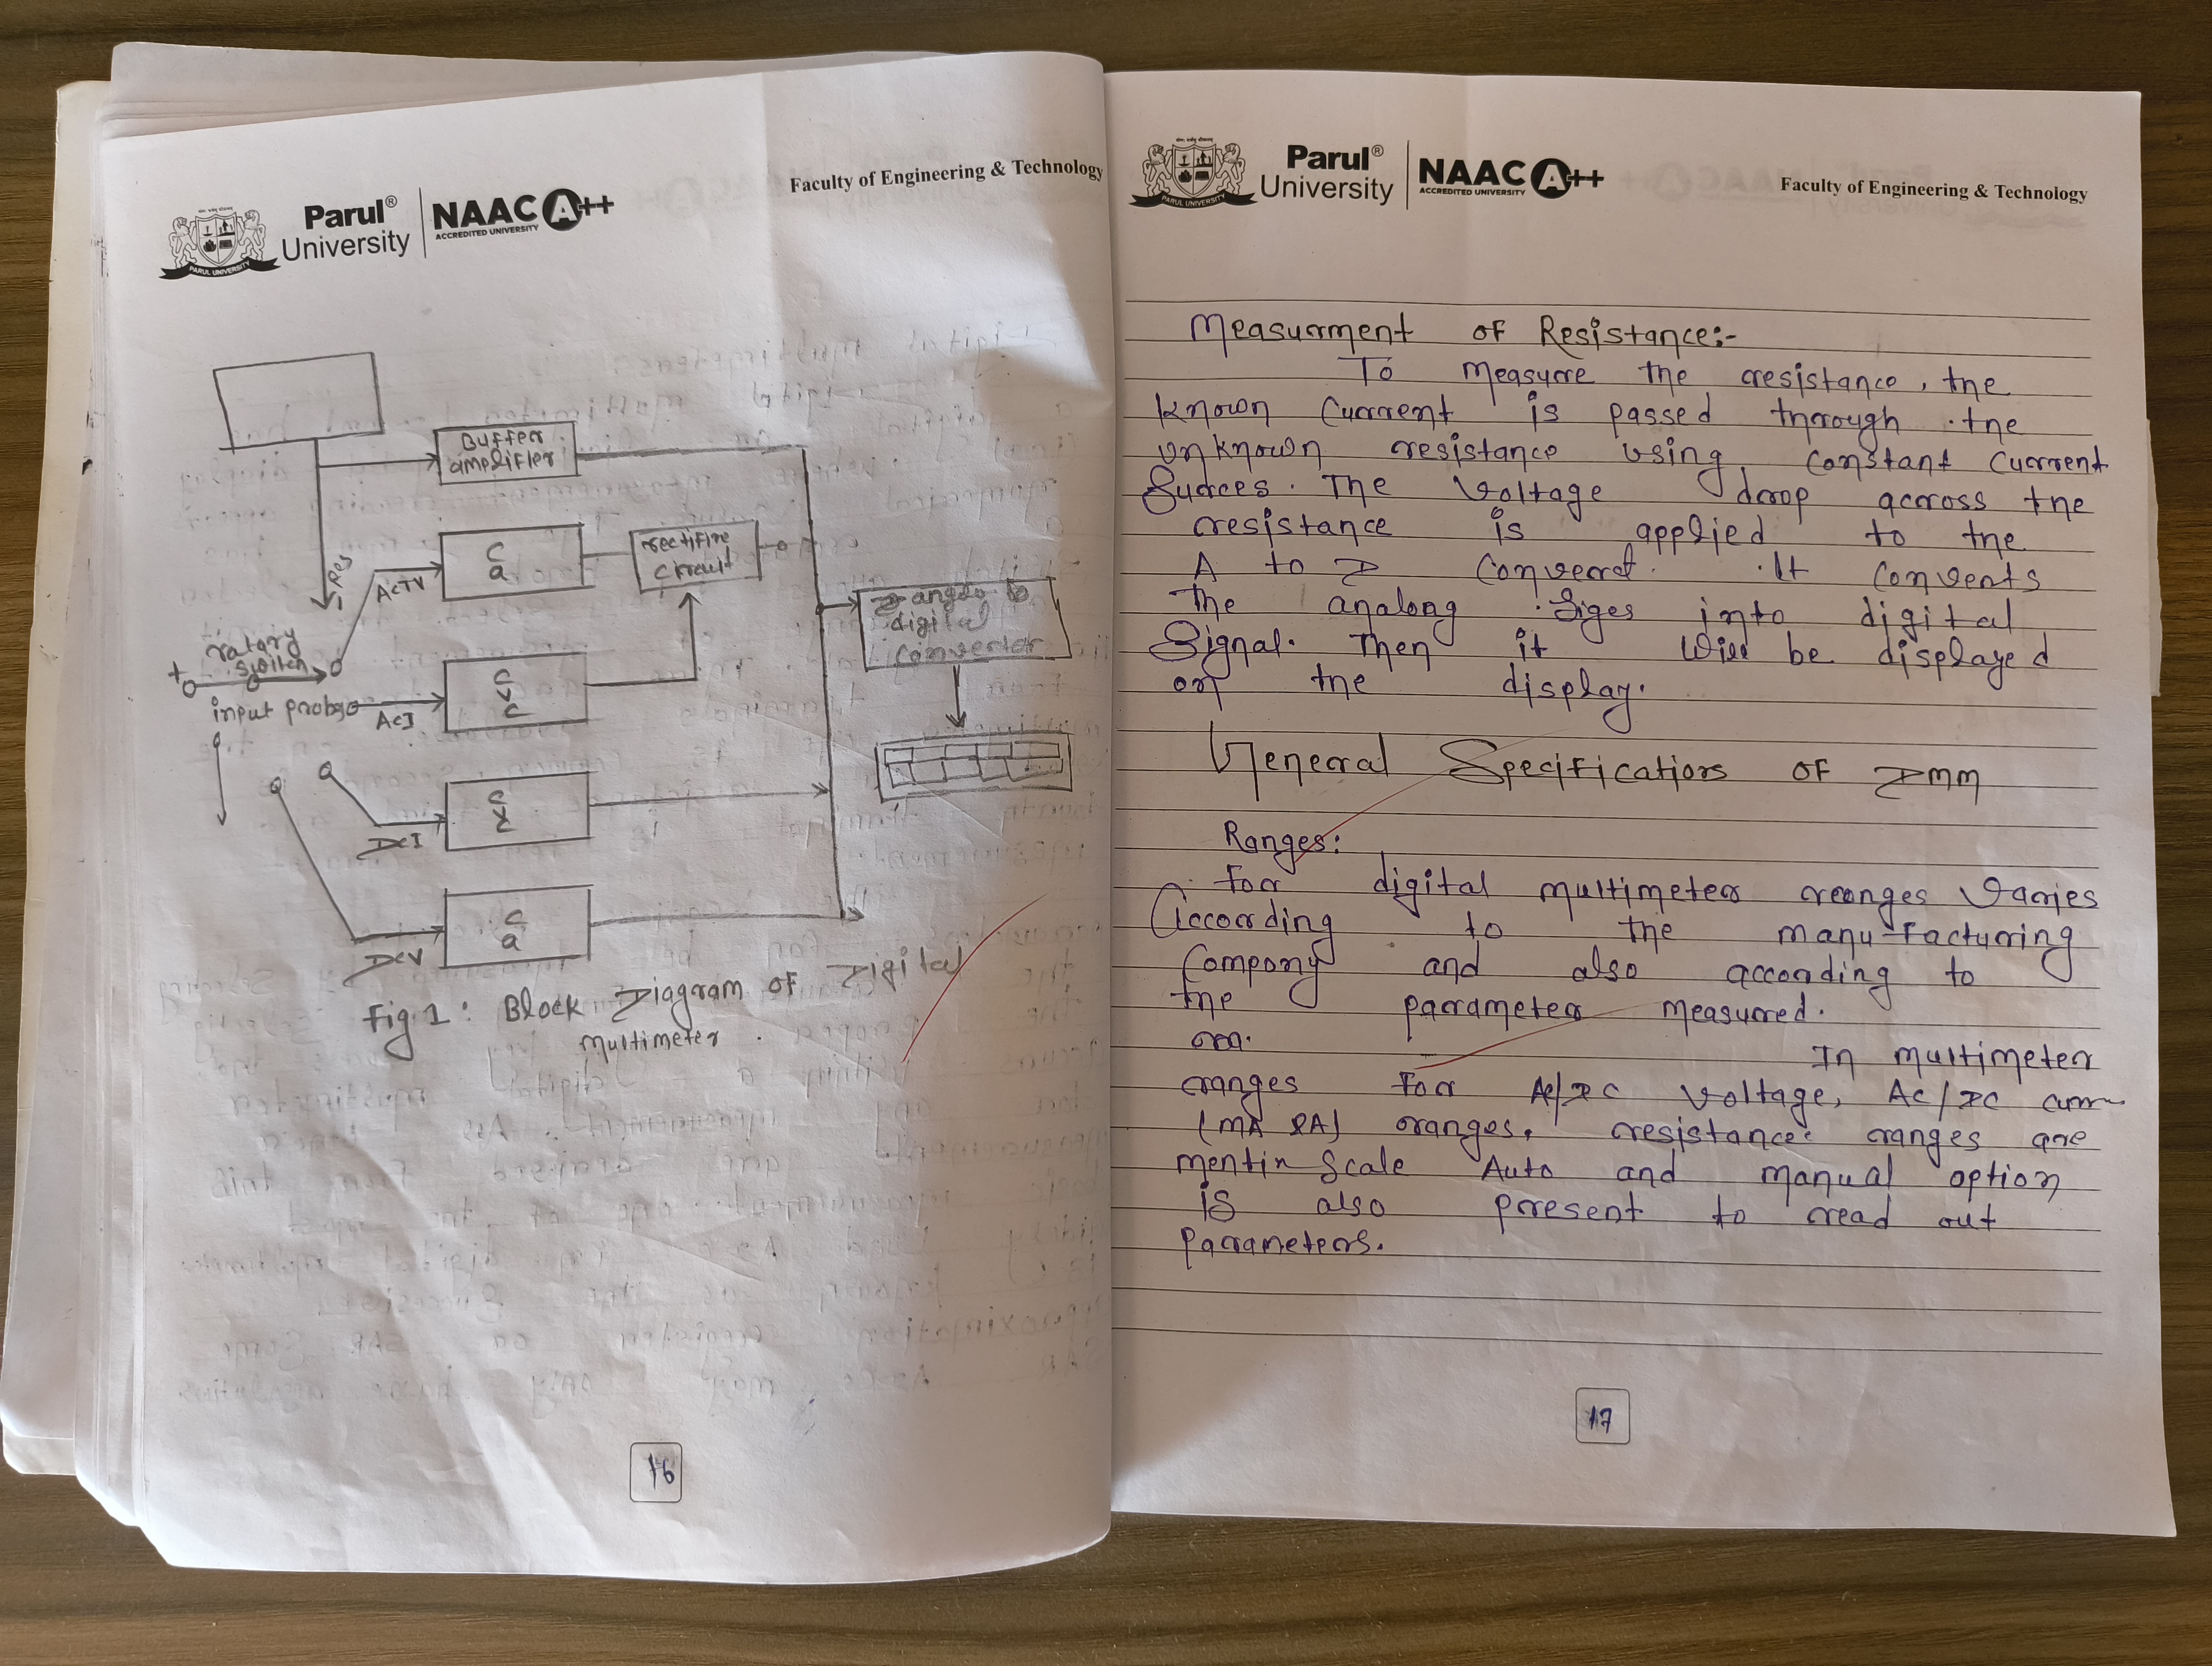 Parul®
University
PARUL UNIVERSITY
NAAC A++
ACCREDITED UNIVERSITY
Faculty of Engineering & Technology
Buffer
amplifier
Res
ACTV
C
a
rectifire
circuit
ratary
switch
+
input probs
ACI
C
V
C
angle to
digital
convertor
DCI
C
DCV
C
a
Fig 1: Block Diagram of Digital
multimeter.
16
Parul®
University
PARUL UNIVERSITY
NAAC A++
ACCREDITED UNIVERSITY
Faculty of Engineering & Technology
Measurment of Resistance:-
To measure the resistance, the
known current is passed through the
unknown resistance using constant current
Surces. The voltage drop across the
resistance is applied to the
A to D converet. It convents
the analong Siges into digital
Signal. Then it will be displayed
on the display.
General Specifications of DMM
Ranges:
For digital multimeter reanges varies
According to the manufacturing
Compony and also according to
the parameter measured.
or. In multimeter
ranges for AC/DC voltage, AC/DC
(MA &A) ranges, resistance ranges are
mentin Scale Auto and manual option
is also present to read out
parameters.
17